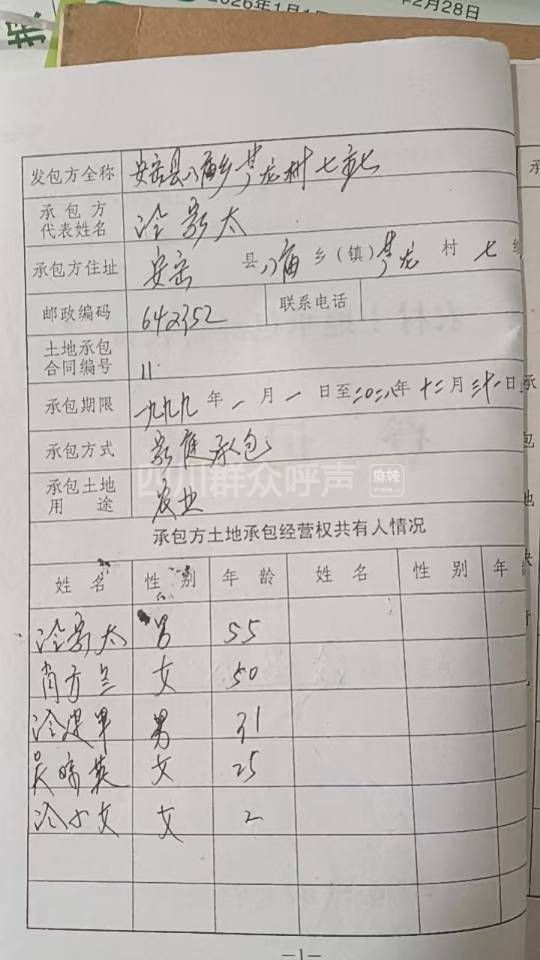 2026年1月1
年2月28日
发包方全称 安岳县八庙乡 龙村七
承包方代表姓名 冷 太
承包方住址 安岳 县八庙乡（镇） 龙村 七
邮政编码 642352 联系电话
土地承包合同编号 11
承包期限 一九九九年一月一日至二〇二八年十二月三十一日
承包方式 家庭承包
承包土地用途 农业
四川群众呼声 麻辣
承包方土地承包经营权共有人情况
姓名 性别 年龄 姓名 性别 年
冷 太 男 55
肖方兰 女 50
冷建军 男 31
吴 英 女 25
冷小文 女 2
—1—